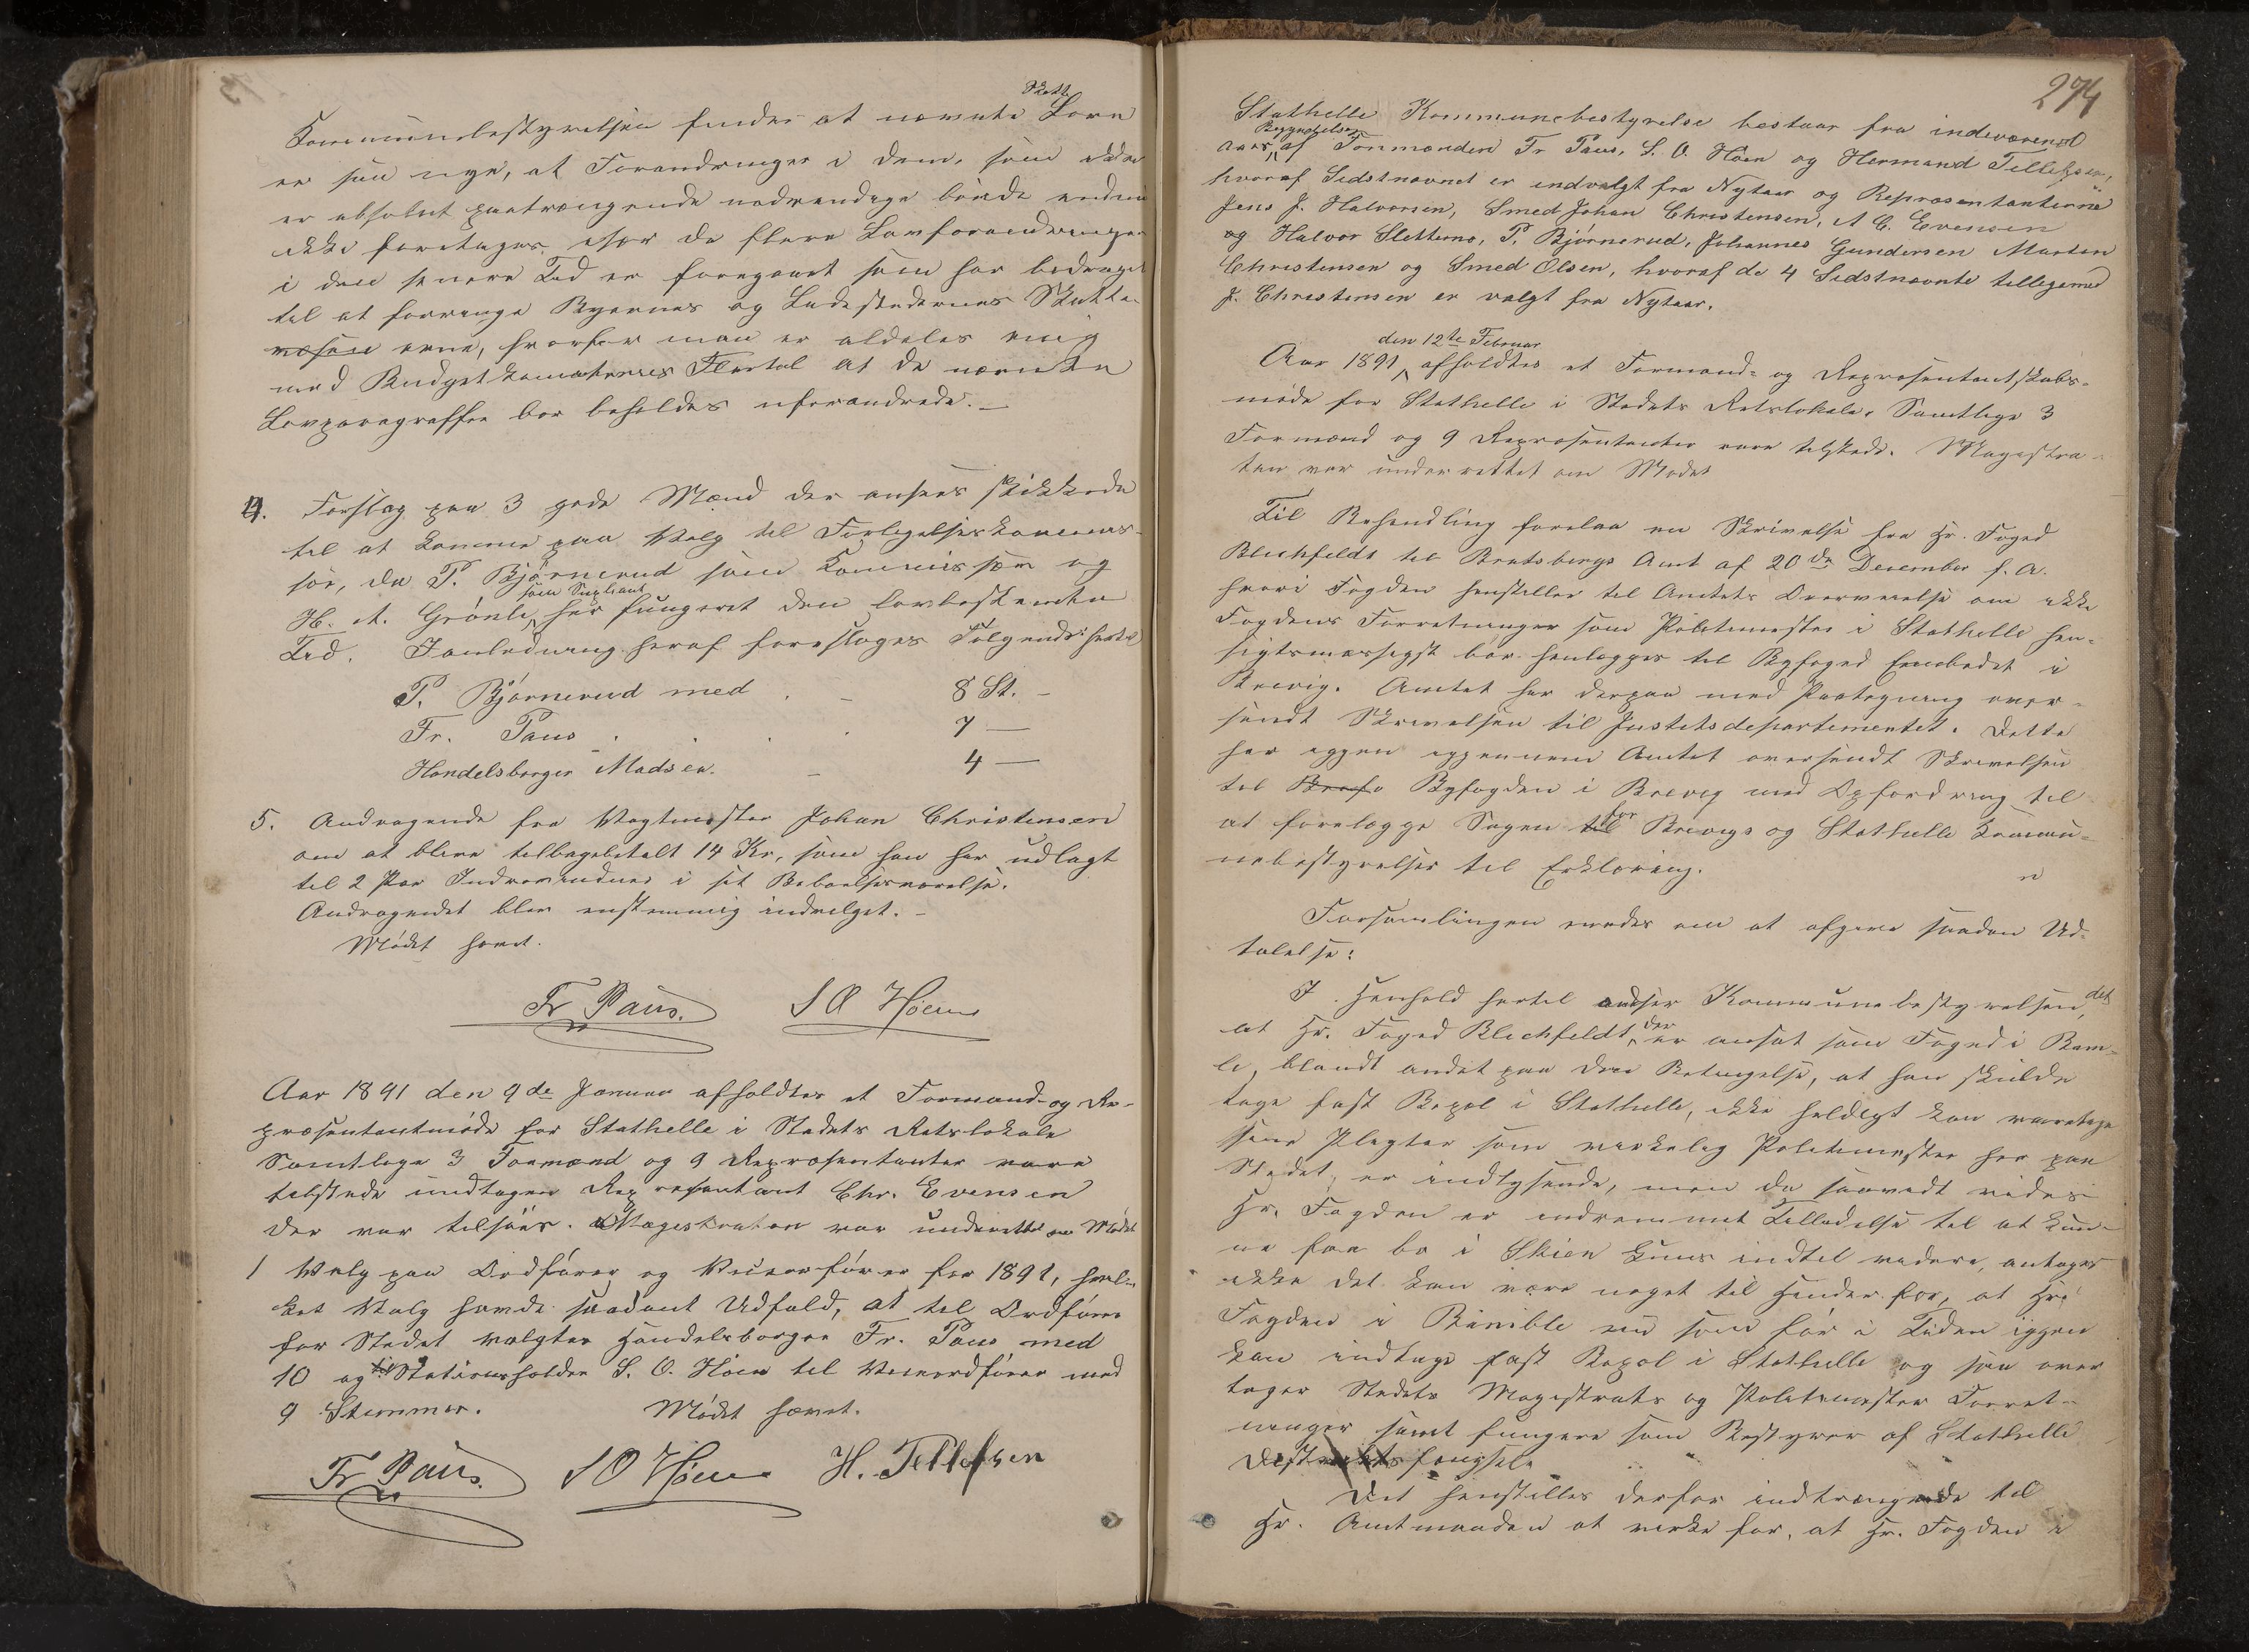 Skatte
Kommunebestyrelsen finder at nævnte Love
er saa nye, at Forandringer i dem, som ikke
er absolut paatrængende nødvendige burde endnu
ikke foretages, især da flere Lovforandringer
i den senere Tid er foregaaet som har bidraget
til at forringe Byernes og Ladestedernes Skatte-
evne, hvorfor man er aldeles enig
med Budgetkomiteens Flertal at de nævnte
Lovparagraffer bør beholdes uforandrede. —
4. Forslag paa 3 gode Mænd der ansees skikkede
til at komme paa Valg til Forligelseskommis-
sær, da P. Bjørnerud som Kommissær og
som Supleant
H. A. Grönli har fungeret den lovbestemte
Tid. I Anledning heraf foreslages Følgende hertil
P. Bjørnerud med . — 8 St. —
Fr. Paus . . . . 7 —
Handelsborger Madsen. — 4 —
5. Andragende fra Vagtmester Johan Christensen
om at blive tilbagebetalt 14 Kr, som han har udlagt
til 2 Par Indrevinduer i sit Beboelsesværelse.
Andragendet blev enstemmig indvilget. —
Mødet hævet.
Fr Paus. S O Høen
Aar 1891 den 9de Januar afholdtes et Formand- og Re-
præsentantmøde for Stathelle i Stedets Retslokale
Samtlige 3 Formænd og 9 Repræsentanter vare
tilstede undtagen Repræsentant Chr. Evensen
der var tilsøes. Magistraten var underrettet om Mødet
1 Valg paa Ordfører og Viceordfører for 1891, hvil-
ket Valg havde saadant Udfald, at til Ordfører
for Stedet valgtes Handelsborger Fr. Paus med
10 og Stationsholder S. O. Høen til Viceordfører med
9 Stemmer. Mødet hævet.
Fr Paus. S O Høen H. Tellefsen
274
Stathelle Kommunebestyrelse bestaar fra indeværende
Begyndelse
Aars af Formændene Fr Paus, S. O. Høen og Hermand Tellefsen,
hvoraf Sidstnævnet er indvalgt fra Nytaar og Repræsentanterne
Jens J. Halvorsen, Smed Johan Christensen, A C. Evensen
og Halvor Slettemo, P. Bjørnerud, Johannes Gundersen Marten
Christensen og Smed Olsen, hvoraf de 4 Sidstnævnte tilligemed
J. Christensen er valgt fra Nytaar.
den 12te Februar
Aar 1891 afholdtes et Formand- og Repræsentantskabs-
møde for Stathelle i Stedets Retslokale. Samtlige 3
Formænd og 9 Repræsentanter vare tilstede. Magistra-
ten var underrettet om Mødet
Til Behandling forelaa en Skrivelse fra Hr. Foged
Blichfeldt til Bratsbergs Amt af 20de December f. A.
hvori Fogden henstiller til Amtets Overveielse om ikke
Fogdens Forretninger som Politimester i Stathelle hen-
sigtsmæssigst bør henlægges til Byfoged Embedet i
Brevig. Amtet har derpaa med Paategning over-
sendt Skrivelsen til Justitsdepartementet. Dette
har igjen igjennem Amtet oversendt Skrivelsen
til Byfogden i Brevig med Opfordring til
at forelægge Sagen for Brevigs og Stathelle Kommu-
nebestyrelser til Erklæring.
Forsamlingen enedes om at afgive saadan Ud-
talelse:
I Henhold hertil andser Kommunebestyrelsen, det
at Hr. Foged Blichfeldt, der er ansat som Foged i Bam-
le, blandt andet paa den Betingelse, at han skulde
tage fast Bopæl i Stathelle, ikke heldigt kan varetage
sine Pligter som virkelig Politimester her paa
Stedet, er indlysende, men da saavidt vides
Hr. Fogden er indrømmet Tilladelse til at kun-
ne faa bo i Skien kuns indtil videre, antages
ikke det kan være noget til Hinder for, at Hr.
Fogden i Bamble nu som før i Tiden igjen
kan indtage fast Bopæl i Stathelle og saa over
tager Stedets Magistrats og Politimester Forret-
ninger samt fungere som Bestyrer af Stathelle
Distriktsfængsel.
Det henstilles derfor indtrængende til
Hr. Amtmanden at virke for, at Hr. Fogden i